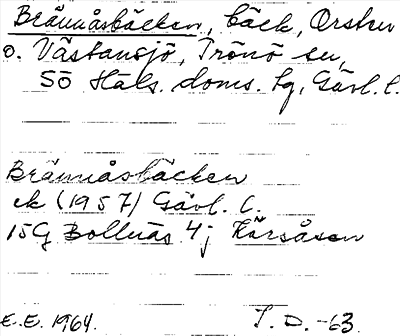 Brännåsbäcken, bäck, Orsten
o. Västansjö, Trönö sn,
SÖ Häls. doms. sg, Gävl. l.
Brännåsbäcken
ek (1957) Gävl. l.
15G Bollnäs 4j Kårsåsen
E.E. 1964. T.D. -63.